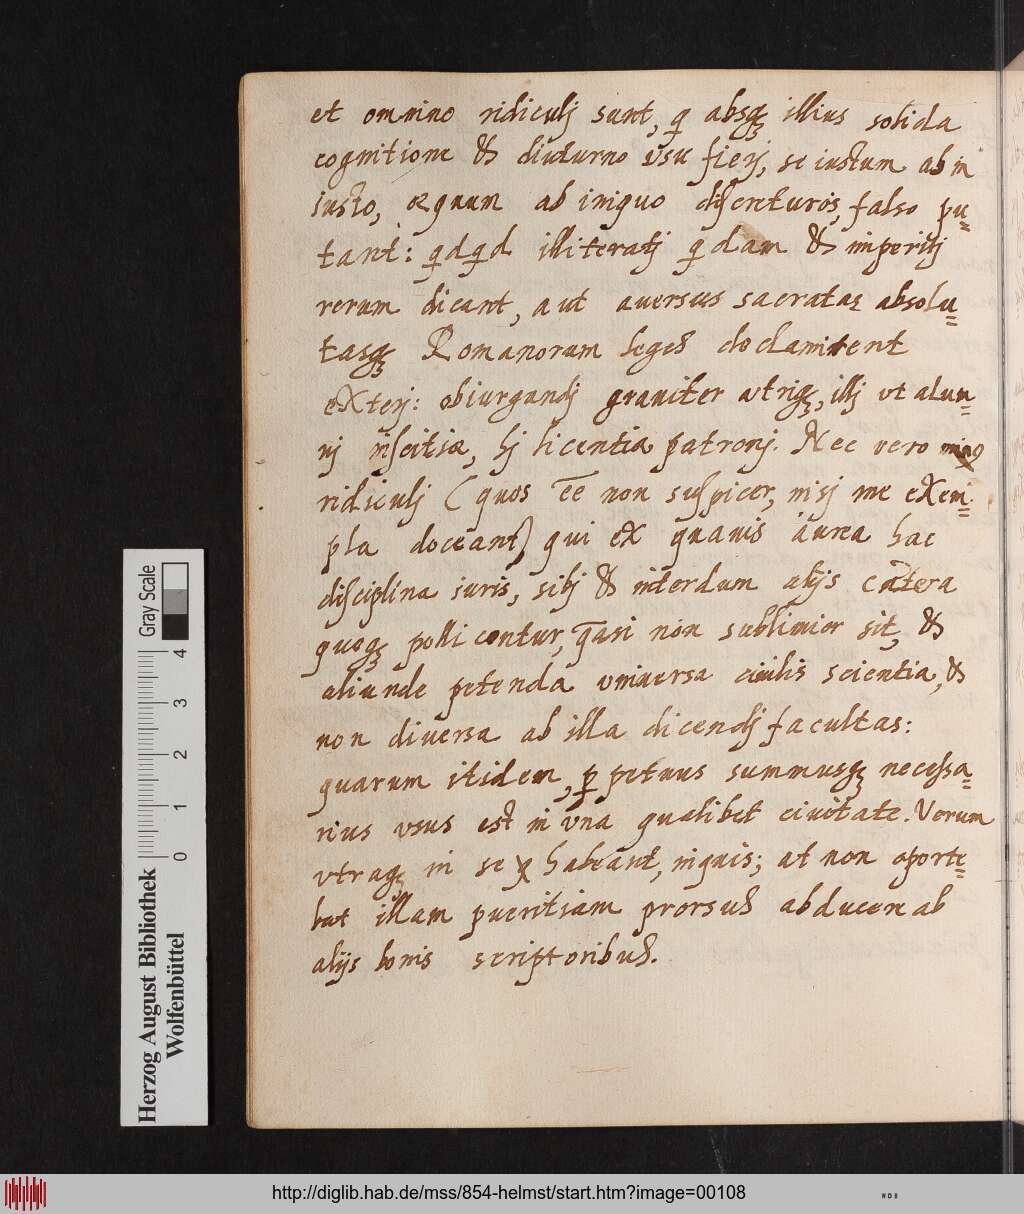 et omnino ridiculj sunt, q absq; illius solida
cognitione & diuturno vsu fierj, se iustum ab in
iusto, æquum ab iniquo discreturos, falso pu=
tant: qdqd illiteratj qdam & imperitj
rerum dicant, aut auersus sacratas absolu=
tasq; Romanorum leges declamitent
exterj: obiurgandj grauiter vtriq;, illj vt alum=
nj inscitiæ, hj licentiæ patronj. Nec vero minus
ridiculj (quos ēē non suspicer, nisj me exem=
pla doceant) qui ex quauis aurea hac
disciplina iuris, sibj & interdum alijs cætera
quoq; pollicentur, quasi non sublimior sit, &
aliunde petenda vniuersa ciuilis scientia, &
non diuersa ab illa dicendj facultas:
quarum itidem, ppetuus summusq; necessa=
rius vsus est in vna qualibet ciuitate. Verum
vtraq; in se habeant, inquis; at non oporte=
bat illam pueritiam prorsus abducere ab
alijs bonis scriptoribus.
Gray Scale
4
3
2
1
0
Herzog August Bibliothek
Wolfenbüttel
http://diglib.hab.de/mss/854-helmst/start.htm?image=00108
WDB